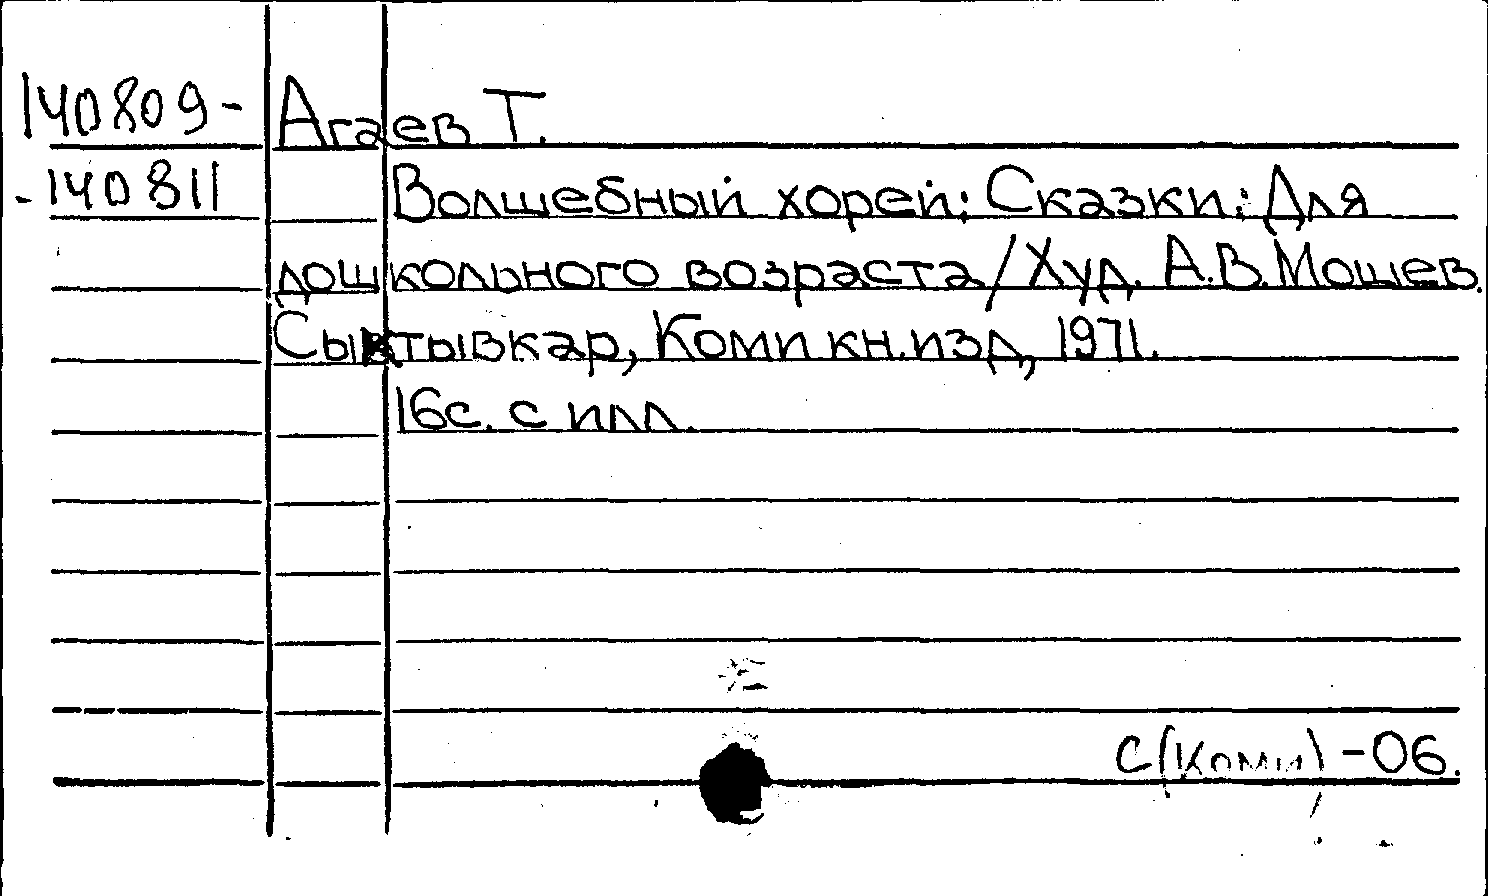 140809- Агаев Т.
-140811 Волшебный хорей: Сказки: Для
дошкольного возраста/Худ. А.В.Мошев.
Сыктывкар, Коми кн.изд, 1971.
16с. с илл.
С(Коми)-06.